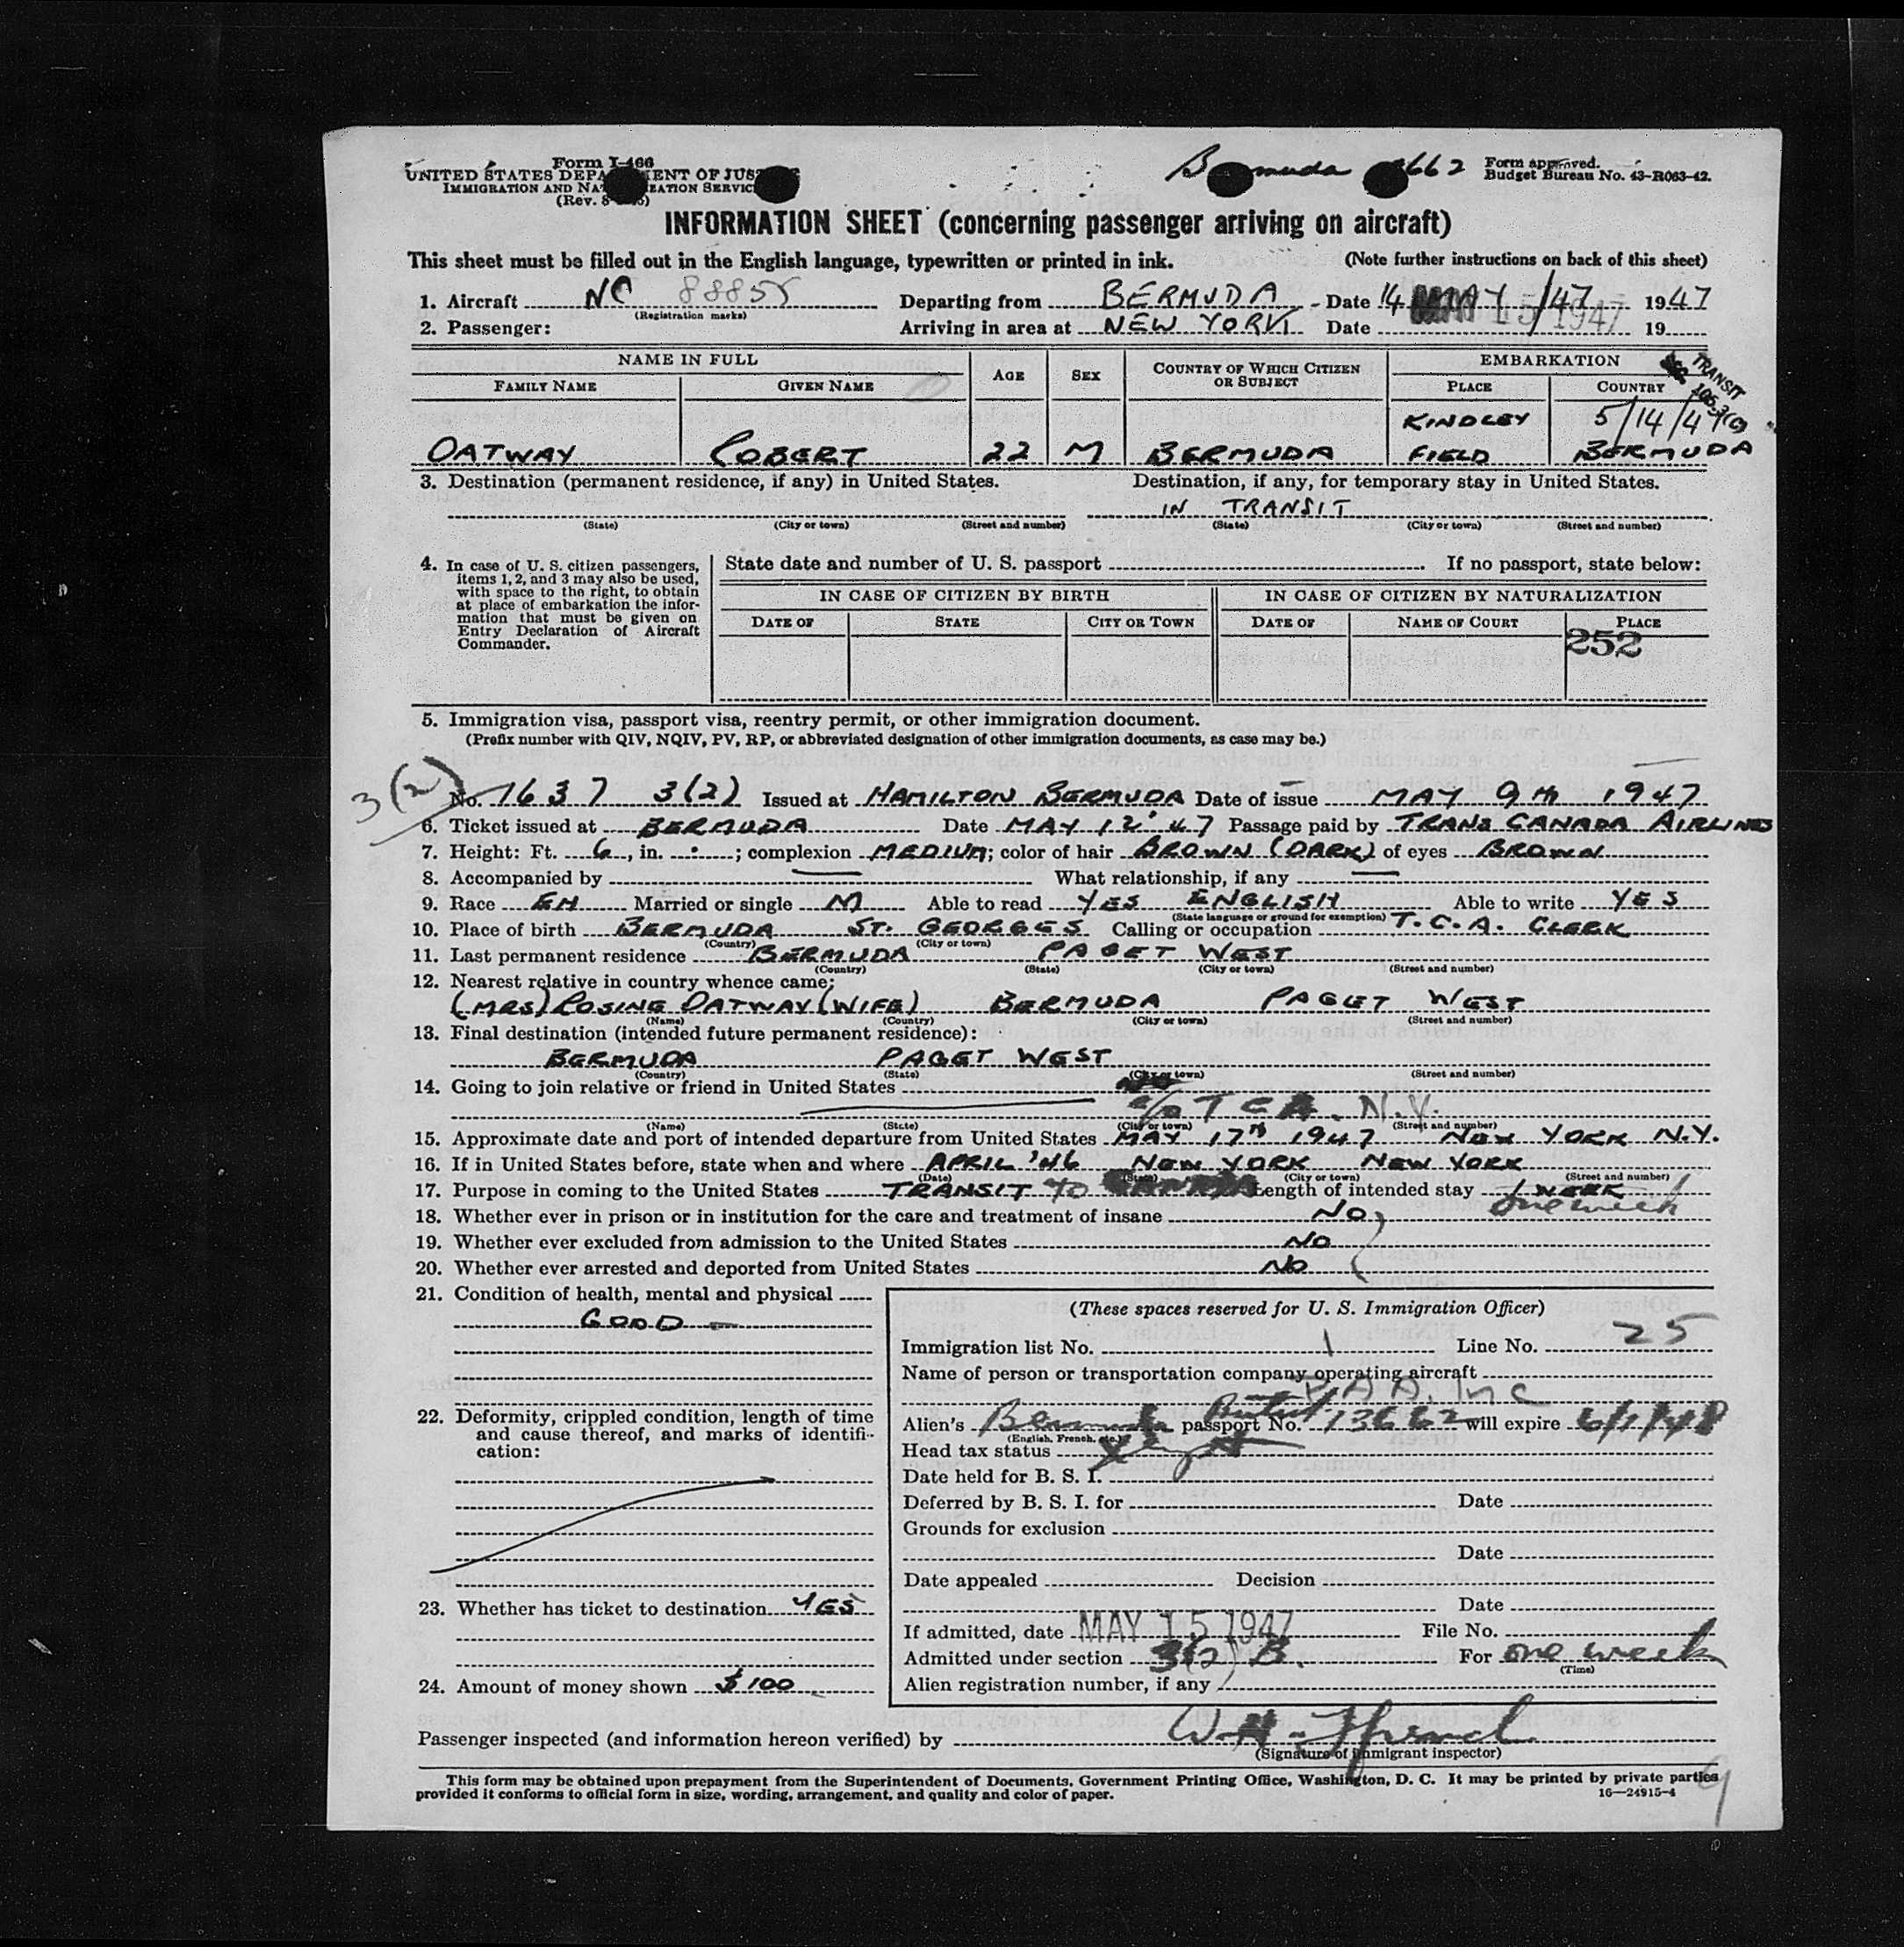 Form I-466
UNITED STATES DEPA ENT OF JUS
IMMIGRATION AND NA ZATION SERVIC
(Rev. 8
B muda 662
Form approved.
Budget Bureau No. 43-R063-42.
INFORMATION SHEET (concerning passenger arriving on aircraft)
This sheet must be filled out in the English language, typewritten or printed in ink. (Note further instructions on back of this sheet)
1. Aircraft NC 88855 Departing from BERMUDA Date 14 MAY /47 1947
(Registration marks)
2. Passenger: Arriving in area at NEW YORK Date MAY 15 1947 19
NAME IN FULL AGE SEX COUNTRY OF WHICH CITIZEN OR SUBJECT EMBARKATION
FAMILY NAME GIVEN NAME PLACE COUNTRY
TRANSIT
KINDLEY 5/14/47
OATWAY ROBERT 22 M BERMUDA FIELD BERMUDA
3. Destination (permanent residence, if any) in United States. Destination, if any, for temporary stay in United States.
IN TRANSIT
(State) (City or town) (Street and number) (State) (City or town) (Street and number)
4. In case of U. S. citizen passengers, items 1, 2, and 3 may also be used, with space to the right, to obtain at place of embarkation the information that must be given on Entry Declaration of Aircraft Commander.
State date and number of U. S. passport If no passport, state below:
IN CASE OF CITIZEN BY BIRTH IN CASE OF CITIZEN BY NATURALIZATION
DATE OF STATE CITY OR TOWN DATE OF NAME OF COURT PLACE
252
5. Immigration visa, passport visa, reentry permit, or other immigration document.
(Prefix number with QIV, NQIV, PV, RP, or abbreviated designation of other immigration documents, as case may be.)
3(2)
No. 1637 3(2) Issued at HAMILTON BERMUDA Date of issue MAY 9TH 1947
6. Ticket issued at BERMUDA Date MAY 12 '47 Passage paid by TRANS CANADA AIRLINES
7. Height: Ft. 6, in. ; complexion MEDIUM; color of hair BROWN (DARK) of eyes BROWN
8. Accompanied by What relationship, if any
9. Race EH Married or single M Able to read YES ENGLISH Able to write YES
(State language or ground for exemption)
10. Place of birth BERMUDA ST. GEORGES Calling or occupation T.C.A. CLERK
(Country) (City or town)
11. Last permanent residence BERMUDA PAGET WEST
(Country) (State) (City or town) (Street and number)
12. Nearest relative in country whence came:
(MRS) ROSINE OATWAY (WIFE) BERMUDA PAGET WEST
(Name) (Country) (City or town) (Street and number)
13. Final destination (intended future permanent residence):
BERMUDA PAGET WEST
(Country) (State) (City or town) (Street and number)
14. Going to join relative or friend in United States
c/o T C A. N.Y.
(Name) (State) (City or town) (Street and number)
15. Approximate date and port of intended departure from United States MAY 17TH 1947 NEW YORK N.Y.
16. If in United States before, state when and where APRIL '46 NEW YORK NEW YORK
(Date) (State) (City or town) (Street and number)
17. Purpose in coming to the United States TRANSIT TO CANADA Length of intended stay 1 WEEK
one week
18. Whether ever in prison or in institution for the care and treatment of insane NO
19. Whether ever excluded from admission to the United States NO
20. Whether ever arrested and deported from United States NO
21. Condition of health, mental and physical
GOOD
22. Deformity, crippled condition, length of time and cause thereof, and marks of identification:
23. Whether has ticket to destination YES
24. Amount of money shown $100
(These spaces reserved for U. S. Immigration Officer)
Immigration list No. 1 Line No. 25
Name of person or transportation company operating aircraft
P.A.A. Inc
Alien's Bermuda British passport No. 13662 will expire 6/1/48
(English, French, etc.)
Head tax status
Date held for B. S. I.
Deferred by B. S. I. for Date
Grounds for exclusion
Date
Date appealed Decision
Date
If admitted, date MAY 15 1947 File No.
Admitted under section 3(2) B. For one week
(Time)
Alien registration number, if any
Passenger inspected (and information hereon verified) by
(Signature of immigrant inspector)
This form may be obtained upon prepayment from the Superintendent of Documents, Government Printing Office, Washington, D. C. It may be printed by private parties
provided it conforms to official form in size, wording, arrangement, and quality and color of paper. 16—24915-4
9